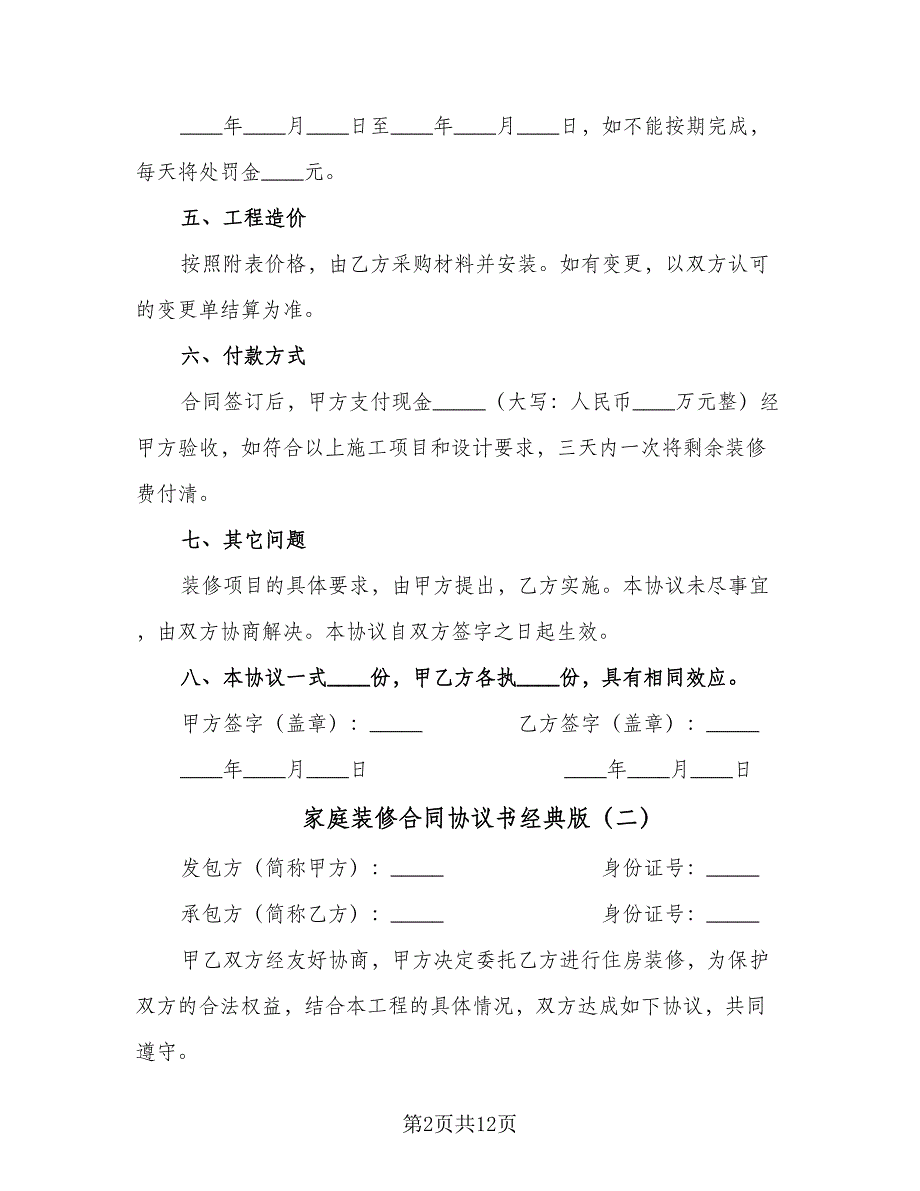 ____年____月____日至____年____月____日，如不能按期完成，
每天将处罚金____元。
五、工程造价
按照附表价格，由乙方采购材料并安装。如有变更，以双方认可
的变更单结算为准。
六、付款方式
合同签订后，甲方支付现金_____（大写：人民币____万元整）经
甲方验收，如符合以上施工项目和设计要求，三天内一次将剩余装修
费付清。
七、其它问题
装修项目的具体要求，由甲方提出，乙方实施。本协议未尽事宜
，由双方协商解决。本协议自双方签字之日起生效。
八、本协议一式____份，甲乙方各执____份，具有相同效应。
甲方签字（盖章）：_____ 乙方签字（盖章）：_____
____年____月____日 ____年____月____日
家庭装修合同协议书经典版（二）
发包方（简称甲方）：_____ 身份证号：_____
承包方（简称乙方）：_____ 身份证号：_____
甲乙双方经友好协商，甲方决定委托乙方进行住房装修，为保护
双方的合法权益，结合本工程的具体情况，双方达成如下协议，共同
遵守。
第2页共12页